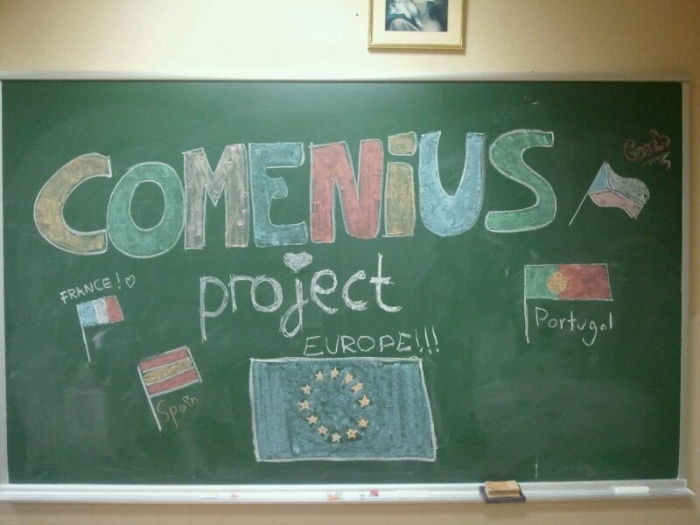 COMENiUS
project
FRANCE!♡
EUROPE!!!
Portugal
Spain